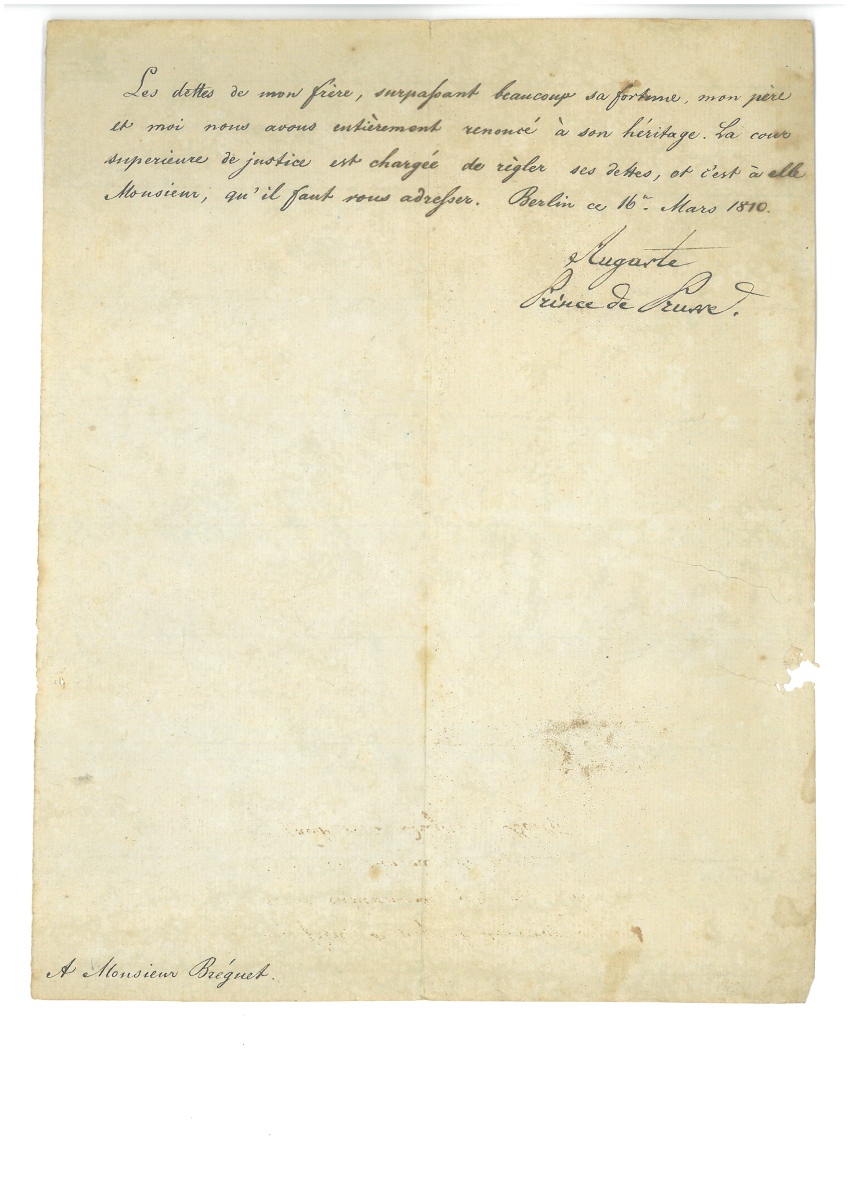 Les dettes de mon frère, surpassant beaucoup sa fortune, mon père
et moi nous avons entièrement renoncé à son héritage. La cour
superieure de justice est chargée de règler ses dettes, et c'est à elle
Monsieur, qu'il faut vous adresser. Berlin ce 16.r Mars 1810.
Auguste
Prince de Prusse.
A Monsieur Bréguet.